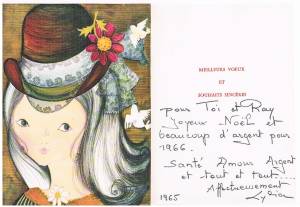 MEILLEURS VOEUX
ET
SOUHAITS SINCÈRES
pour Toi et Ray
Joyeux Noël et
beaucoup d'argent pour
1966.
Santé Amour Argent
et tout et tout....
Affectueusement
1965 Lydia